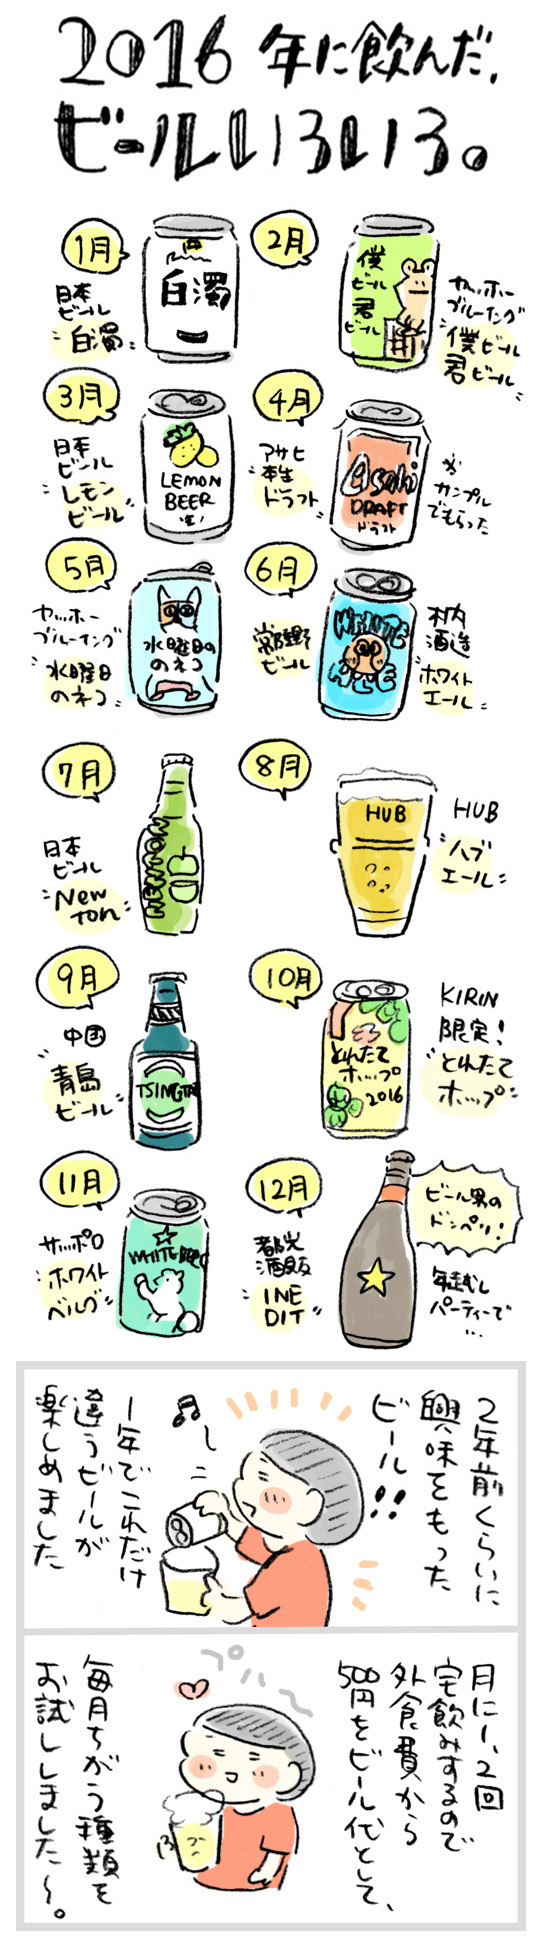 2016年に飲んだ、
ビールいろいろ。
1月
日本
ビール
白濁
白濁
2月
僕
ビール
君
ビール
ヤッホー
ブルーイング
僕ビール
君ビール
3月
日本
ビール
レモン
ビール
LEMON
BEER
4月
アサヒ
本生
ドラフト
Asahi
DRAFT
ドラフト
※
サンプル
でもらった
5月
ヤッホー
ブルーイング
水曜日
のネコ
水曜日の
のネコ
6月
常陸野
ビール
WHITE
ALE
木内
酒造
ホワイト
エール
7月
日本
ビール
New
ton
NEWTON
8月
HUB
HUB
ハブ
エール
9月
中国
青島
ビール
TSINGTAO
10月
とれたて
ホップ
2016
KIRIN
限定!
とれたて
ホップ
11月
サッポロ
ホワイト
ベルグ
WHITE BERG
12月
都光
酒販
INE
DIT
ビール界の
ドンペリ!
年越し
パーティーで
…
2年前くらいに
興味をもった
ビール!!
1年でこれだけ
違うビールが
楽しめました
月に1、2回
宅飲みするので
外食費から
500円をビール代として、
プハ〜
毎月ちがう種類を
お試ししました〜。